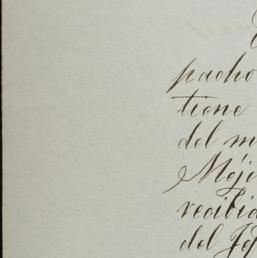 pacho
tiene
del m
Méji
recibid
del Je